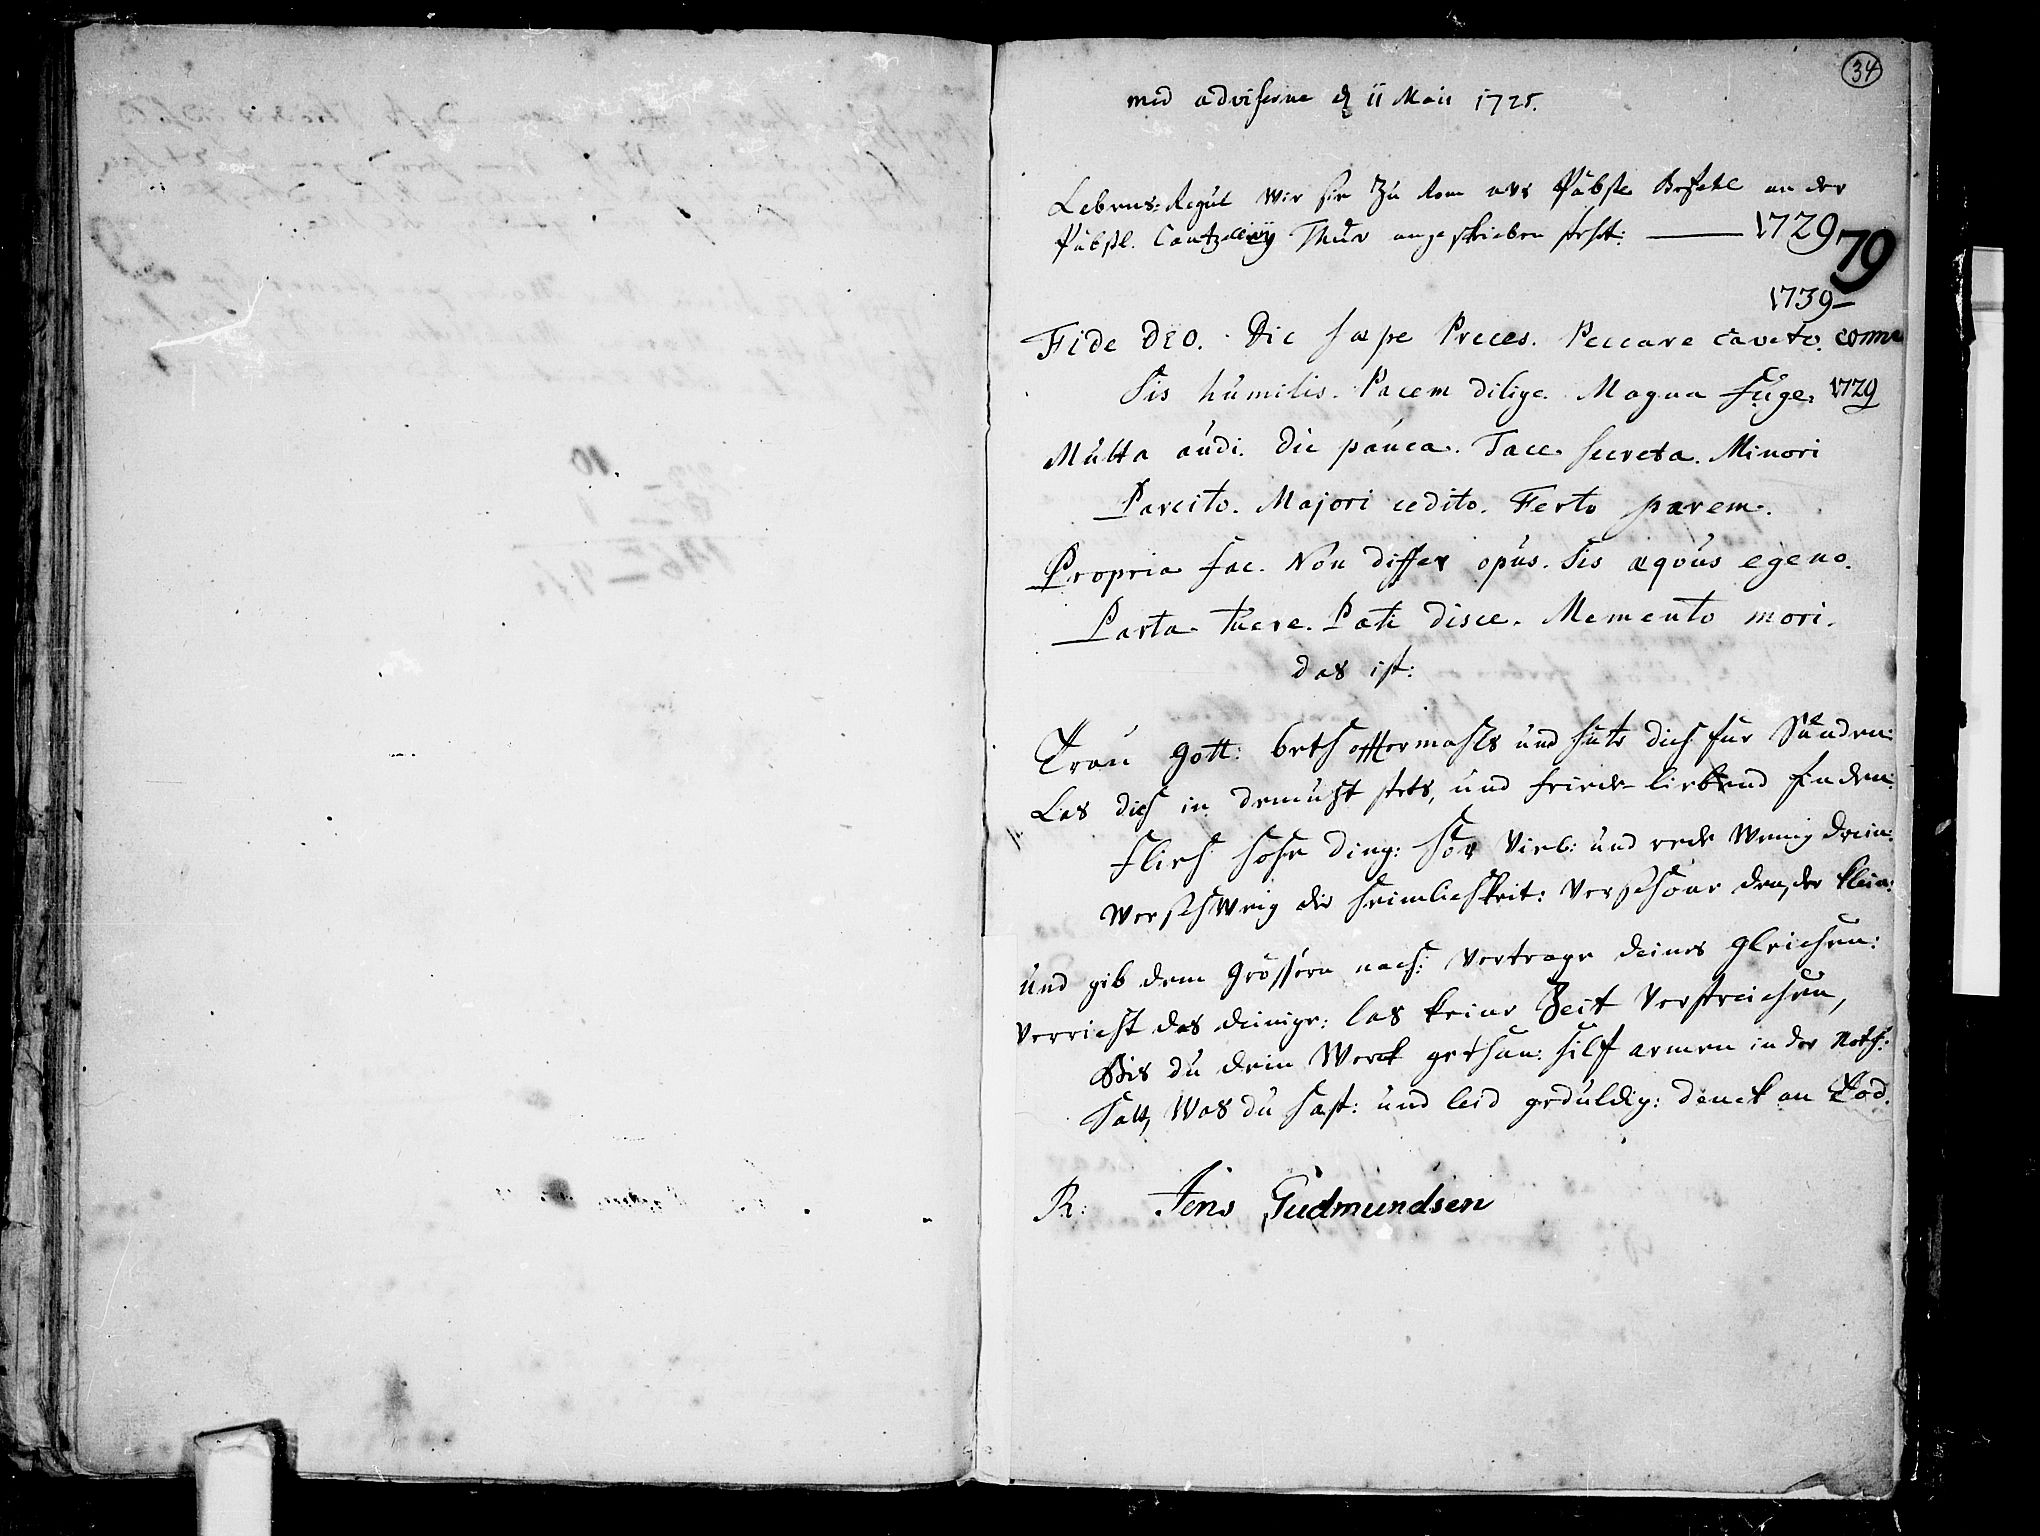 34
med adviserne d 11 Maii 1725.
Lebens-Regul wie sie zu Rom aus Päbstl Befehl an der
Päbstl. Cantzelleÿ Thür angeschrieben steht: — 1729
79
1739—
Fide DEO. Dic sæpe Preces. Peccare caveto.
Sis humilis. Pacem dilige. Magna fuge. 1729
Multa audi. Dic pauca. Tace secreta. Minori
Parcito. Majori cedito. Ferto parem.
Propria fac. Non differ opus. Sis æqvus egeno.
Parta tuere. Pati disce. Memento mori.
das ist:
Trau Gott: beth offtermahls und hüte dich für Sünden:
Las dich in demuht stets, und friede-liebend finden:
flieh hohe ding: hör viel: und rede wenig drein:
Verschweig die heimlichkeit: verschone den, der klein:
und gib dem grössern nach: vertrage deines gleichen:
Verricht das deinige: las keine Zeit verstreichen,
Bis du dein Werck gethan: hilf armen in der Noth:
halt, was du hast: und leid geduldig: denck an Tod.
R: Jens Gudmundsen